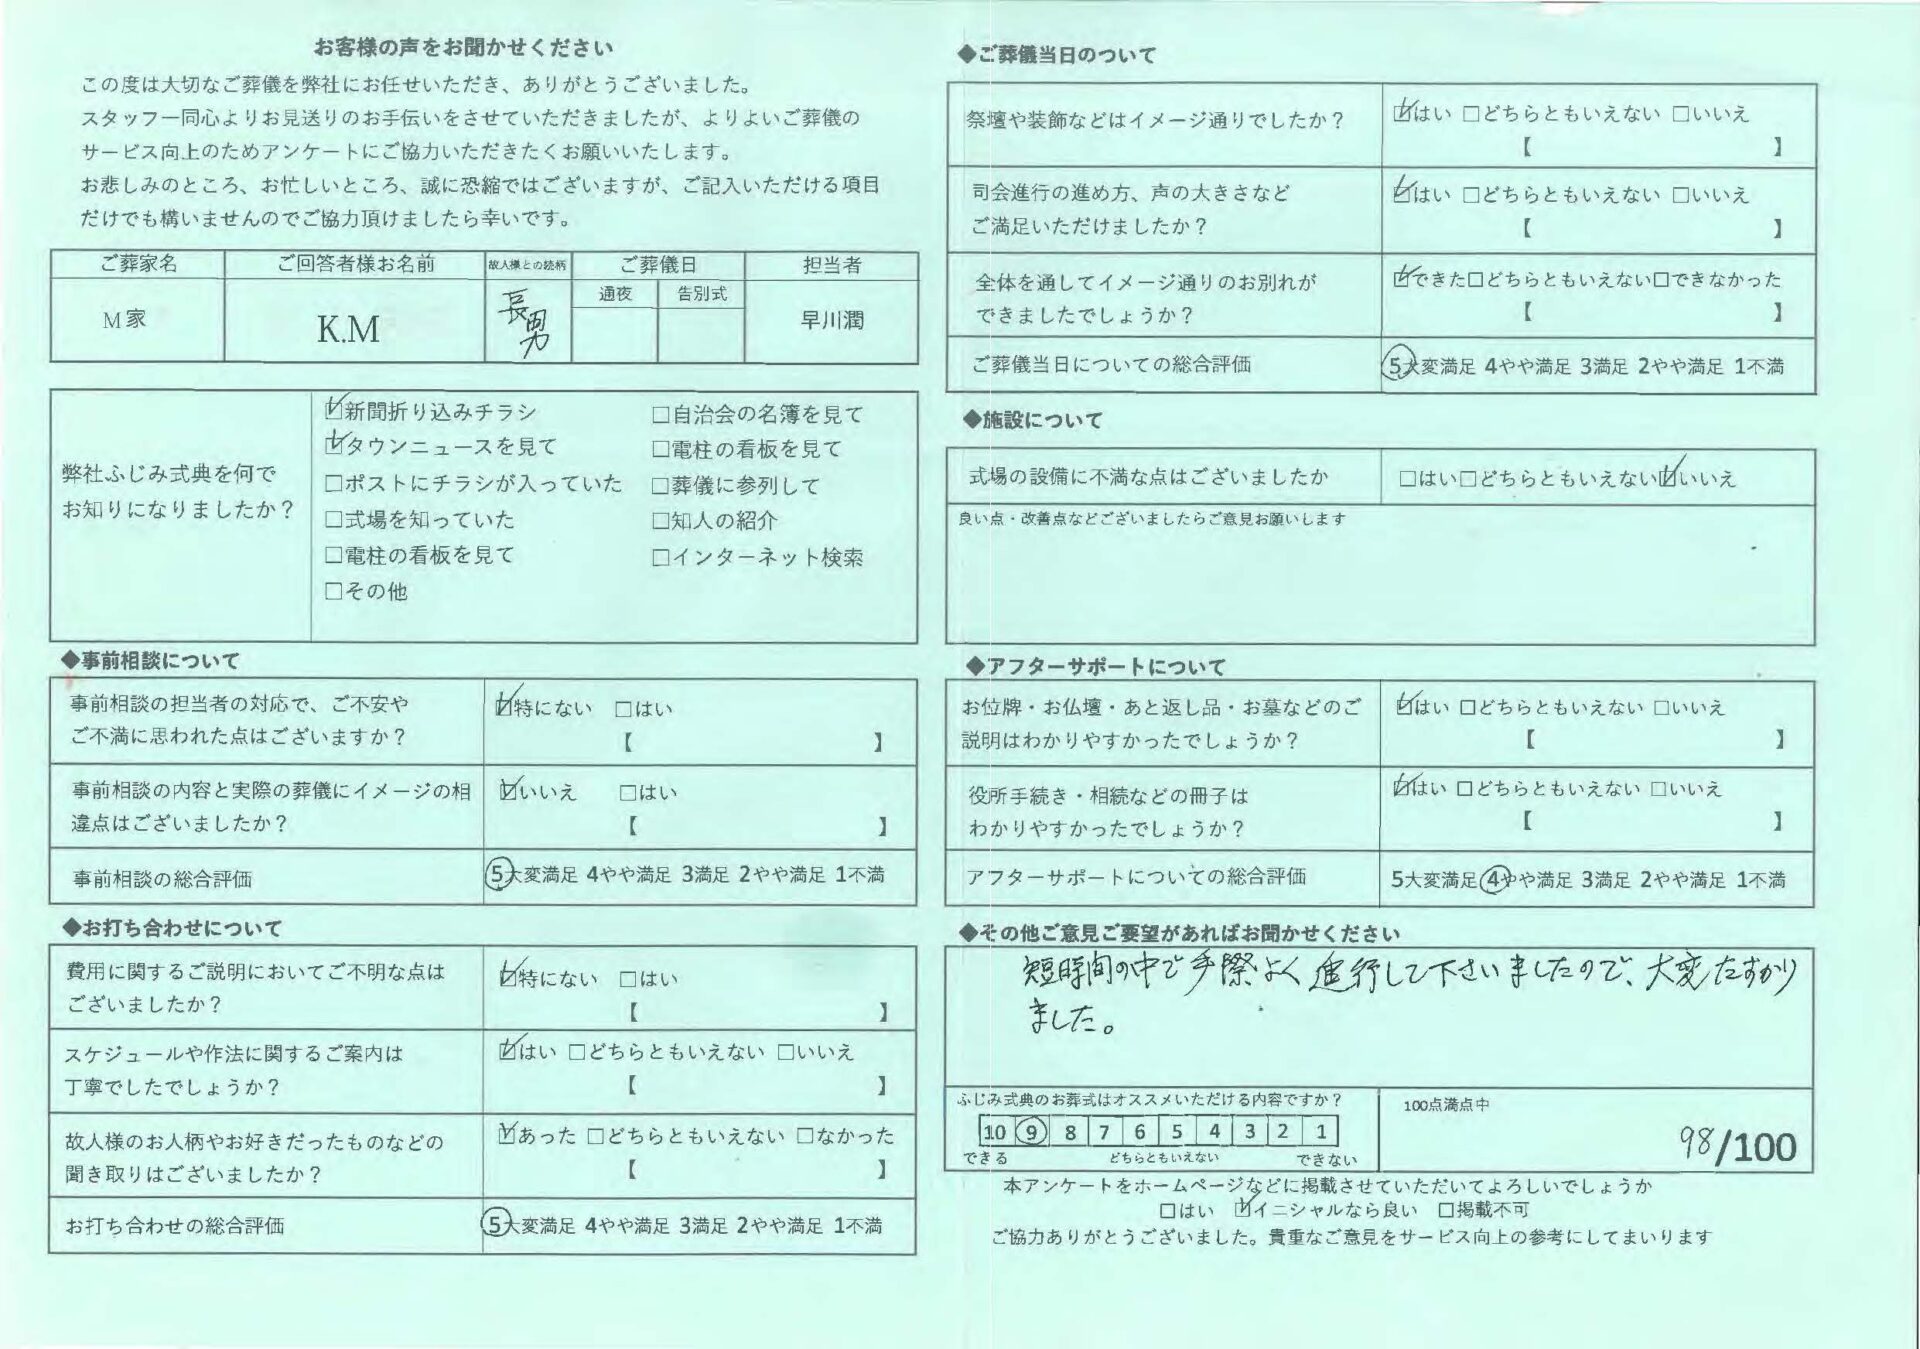 お客様の声をお聞かせください
この度は大切なご葬儀を弊社にお任せいただき、ありがとうございました。
スタッフ一同心よりお見送りのお手伝いをさせていただきましたが、よりよいご葬儀の
サービス向上のためアンケートにご協力いただきたくお願いいたします。
お悲しみのところ、お忙しいところ、誠に恐縮ではございますが、ご記入いただける項目
だけでも構いませんのでご協力頂けましたら幸いです。
ご葬家名 ご回答者様お名前 故人様との続柄 ご葬儀日 担当者
通夜 告別式
M家 K.M 長男 早川潤
弊社ふじみ式典を何で
お知りになりましたか？
☑新聞折り込みチラシ □自治会の名簿を見て
☑タウンニュースを見て □電柱の看板を見て
□ポストにチラシが入っていた □葬儀に参列して
□式場を知っていた □知人の紹介
□電柱の看板を見て □インターネット検索
□その他
◆事前相談について
事前相談の担当者の対応で、ご不安や
ご不満に思われた点はございますか？
☑特にない □はい
【 】
事前相談の内容と実際の葬儀にイメージの相
違点はございましたか？
☑いいえ □はい
【 】
事前相談の総合評価 5大変満足 4やや満足 3満足 2やや満足 1不満
◆お打ち合わせについて
費用に関するご説明においてご不明な点は
ございましたか？
☑特にない □はい
【 】
スケジュールや作法に関するご案内は
丁寧でしたでしょうか？
☑はい □どちらともいえない □いいえ
【 】
故人様のお人柄やお好きだったものなどの
聞き取りはございましたか？
☑あった □どちらともいえない □なかった
【 】
お打ち合わせの総合評価 5大変満足 4やや満足 3満足 2やや満足 1不満
◆ご葬儀当日のついて
祭壇や装飾などはイメージ通りでしたか？
☑はい □どちらともいえない □いいえ
【 】
司会進行の進め方、声の大きさなど
ご満足いただけましたか？
☑はい □どちらともいえない □いいえ
【 】
全体を通してイメージ通りのお別れが
できましたでしょうか？
☑できた□どちらともいえない□できなかった
【 】
ご葬儀当日についての総合評価 5大変満足 4やや満足 3満足 2やや満足 1不満
◆施設について
式場の設備に不満な点はございましたか □はい□どちらともいえない☑いいえ
良い点・改善点などございましたらご意見お願いします
◆アフターサポートについて
お位牌・お仏壇・あと返し品・お墓などのご
説明はわかりやすかったでしょうか？
☑はい □どちらともいえない □いいえ
【 】
役所手続き・相続などの冊子は
わかりやすかったでしょうか？
☑はい □どちらともいえない □いいえ
【 】
アフターサポートについての総合評価 5大変満足 4やや満足 3満足 2やや満足 1不満
◆その他ご意見ご要望があればお聞かせください
短時間の中で手際よく進行して下さいましたので、大変たすかり
ました。
ふじみ式典のお葬式はオススメいただける内容ですか？
10 9 8 7 6 5 4 3 2 1
できる どちらともいえない できない
100点満点中
98/100
本アンケートをホームページなどに掲載させていただいてよろしいでしょうか
□はい ☑イニシャルなら良い □掲載不可
ご協力ありがとうございました。貴重なご意見をサービス向上の参考にしてまいります